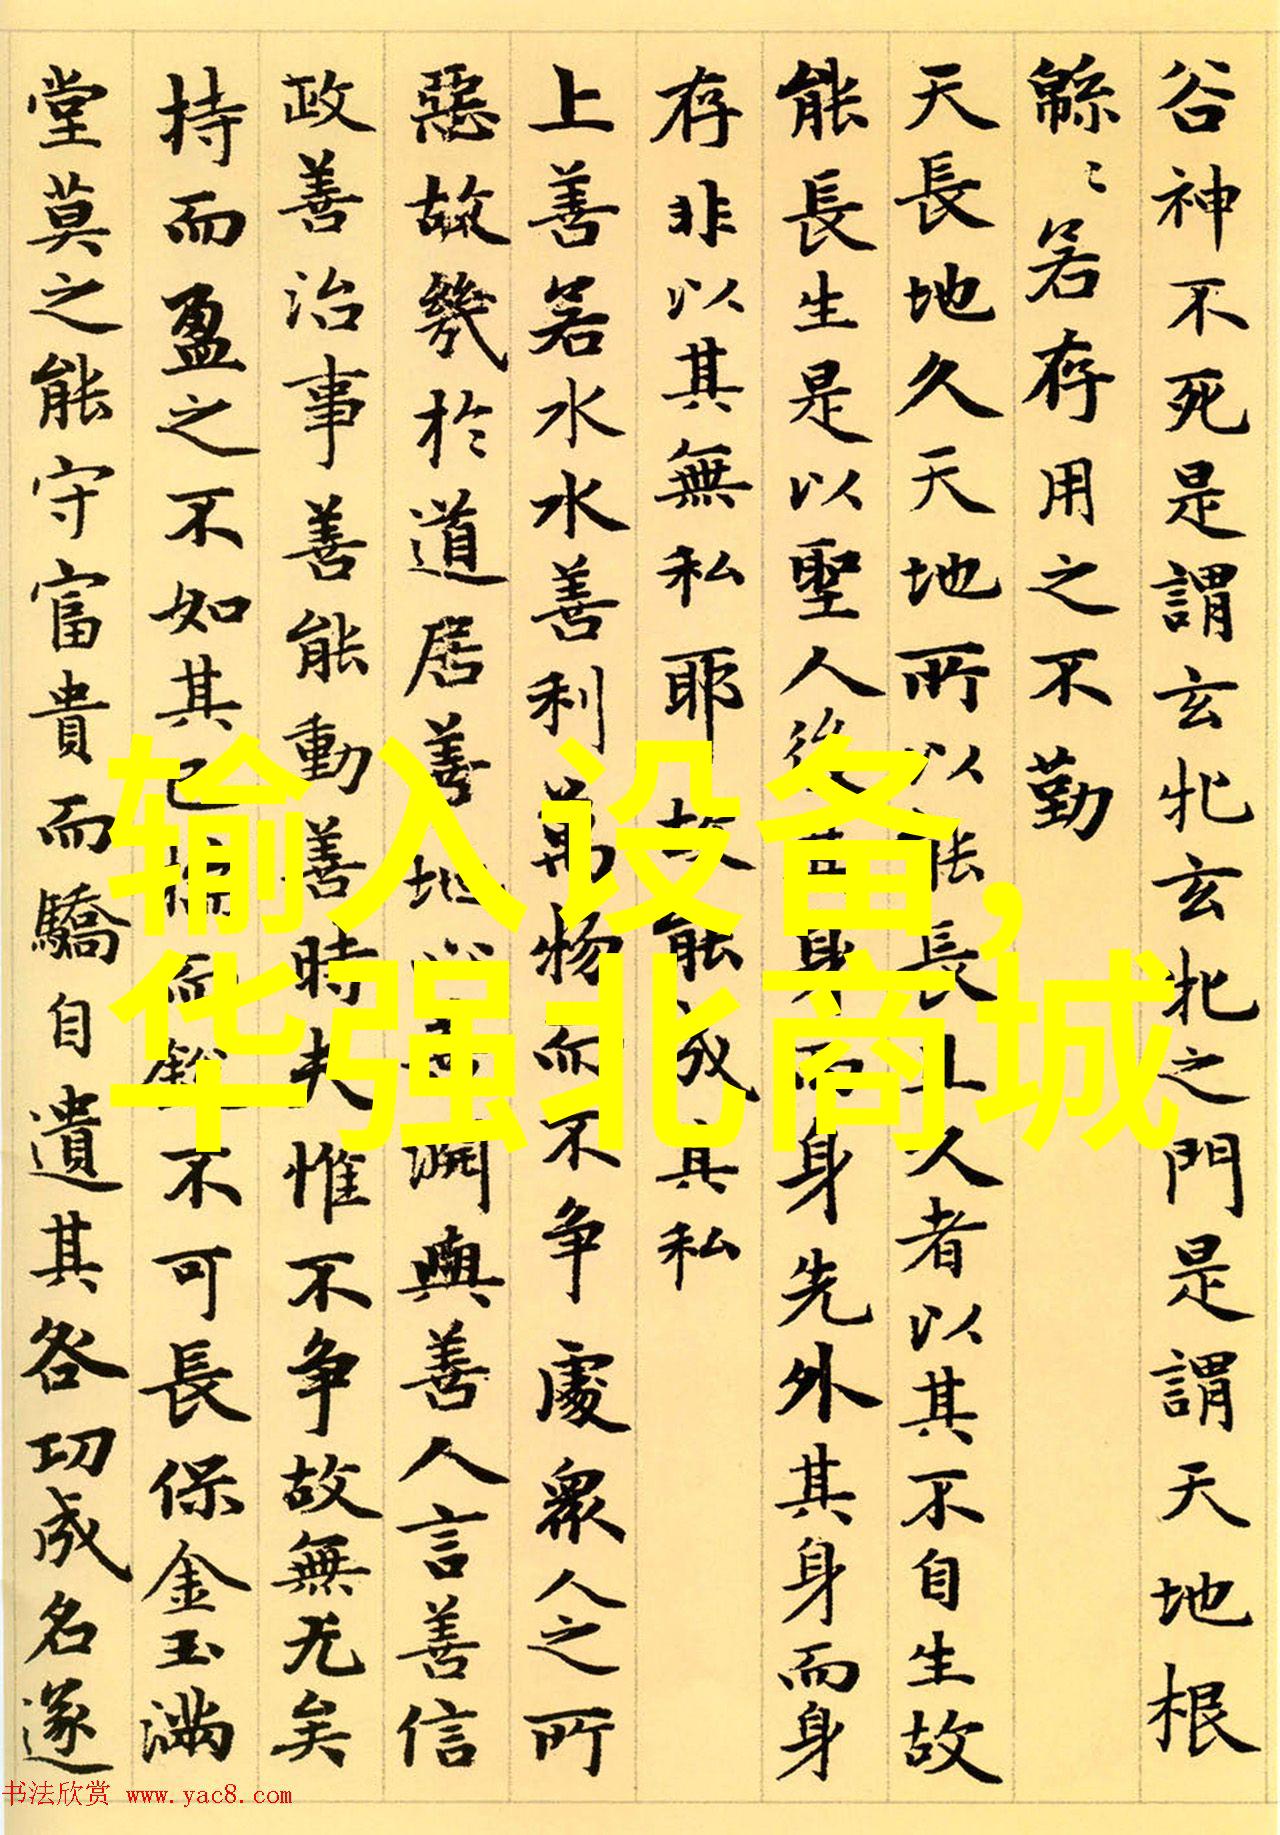 谷神不死是謂玄牝玄牝之門是謂天地根
緜〻若存用之不勤
天長地久天地所以能長且久者以其不自生故
能長生是以聖人後其身而身先外其身而身
存非以其無私耶故能成其私
上善若水水善利萬物而不争處衆人之所
惡故幾於道居善地心善渊與善人言善信
政善治事善能動善時夫惟不争故無尤矣
持而盈之不如其已揣而銳不可長保金玉滿
堂莫之能守富貴而驕自遺其咎功成名遂
输入设备,
华强北商城
书法欣赏 www.yac8.com